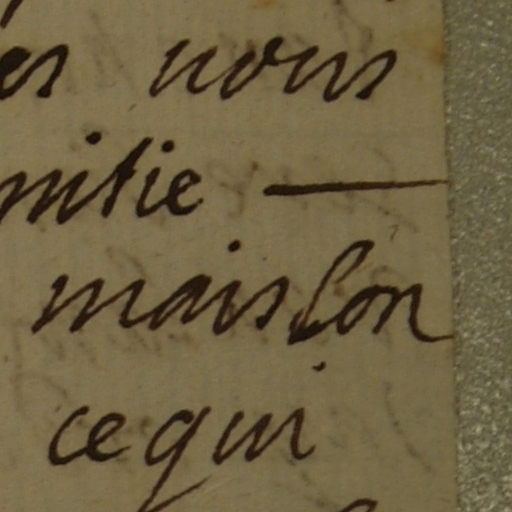 es nous
mitie —
maislon
cequi